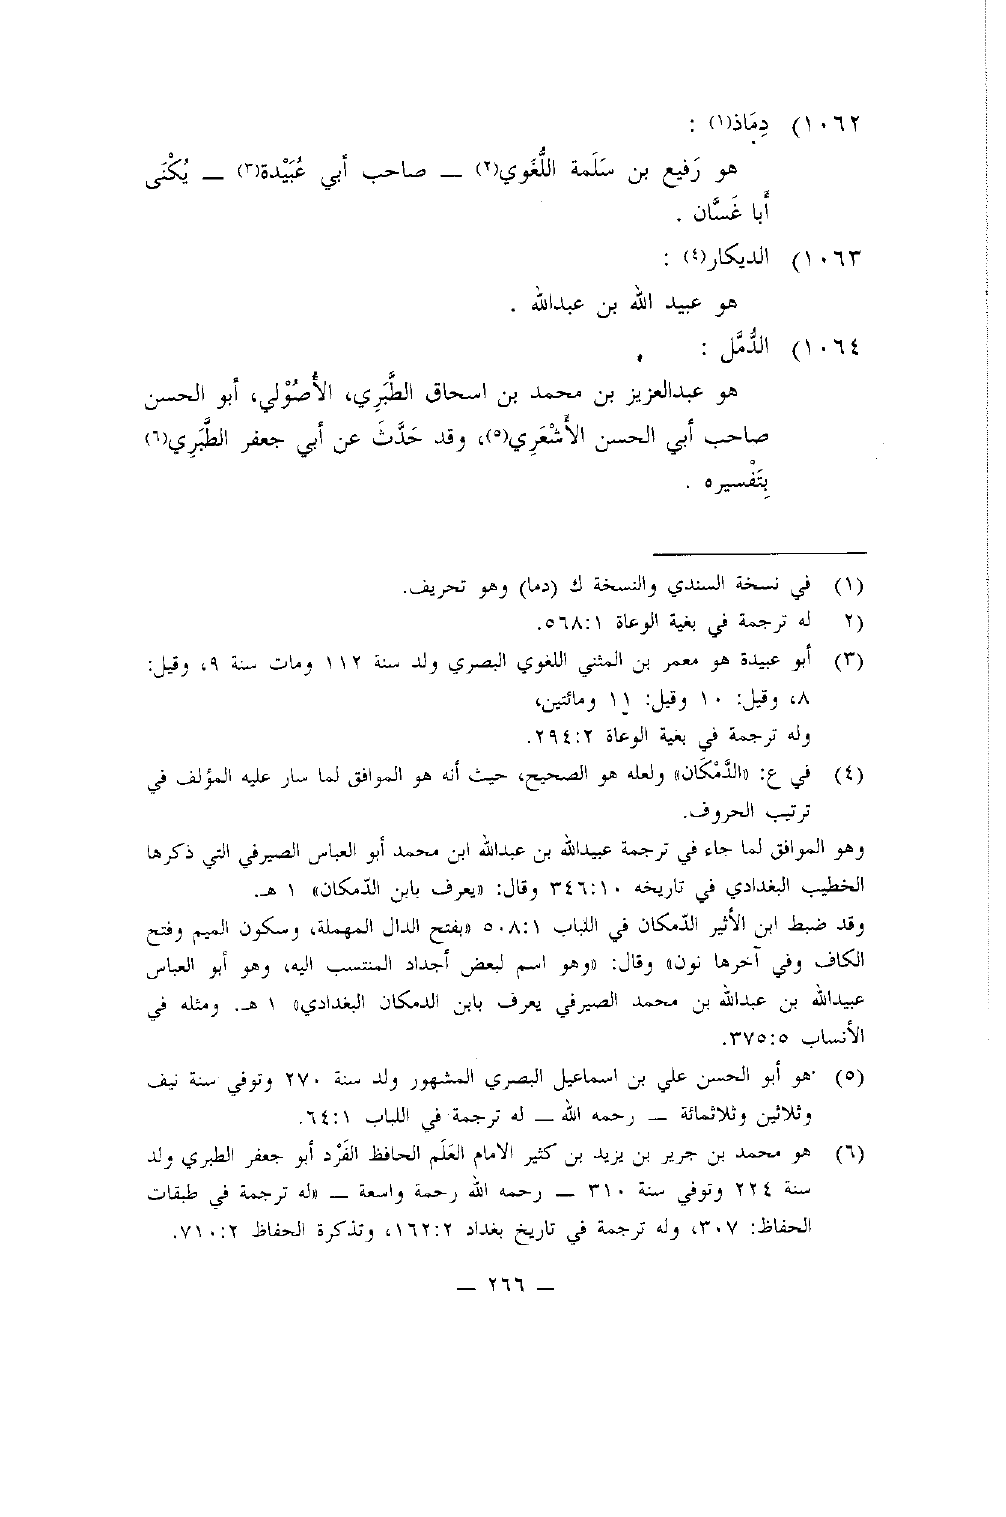 ١٠٦٢) دِمَاذ(١) :
هو رَفيع بن سَلَمة اللُّغَوي(٢) ــ صاحب أبي عُبَيْدة(٣) ــ يُكْنَى
أَبا غَسَّان .
١٠٦٣) الديكار(٤) :
هو عبيد الله بن عبدالله .
١٠٦٤) الدُّمَّل :
هو عبدالعزيز بن محمد بن اسحاق الطَّبَرِي، الأُصُوْلي، أبو الحسن
صاحب أبي الحسن الأَشْعَرِي(٥)، وقد حَدَّثَ عن أبي جعفر الطَّبَرِي(٦)
بِتَفْسيره .
(١) في نسخة السندي والنسخة ك (دما) وهو تحريف.
(٢ له ترجمة في بغية الوعاة ٥٦٨:١.
(٣) أبو عبيدة هو معمر بن المثني اللغوي البصري ولد سنة ١١٢ ومات سنة ٩، وقيل:
٨، وقيل: ١٠ وقيل: ١١ ومائتين،
وله ترجمة في بغية الوعاة ٢٩٤:٢.
(٤) في ع: «الدَّمْكَان» ولعله هو الصحيح، حيث أنه هو الموافق لما سار عليه المؤلف في
ترتيب الحروف.
وهو الموافق لما جاء في ترجمة عبيدالله بن عبدالله ابن محمد أبو العباس الصيرفي التي ذكرها
الخطيب البغدادي في تاريخه ٣٤٦:١٠ وقال: «يعرف بابن الدّمكان» ١ هـ.
وقد ضبط ابن الأثير الدّمكان في اللباب ٥٠٨:١ «بفتح الدال المهملة، وسكون الميم وفتح
الكاف وفي آخرها نون» وقال: «وهو اسم لبعض أجداد المنتسب اليه، وهو أبو العباس
عبيدالله بن عبدالله بن محمد الصيرفي يعرف بابن الدمكان البغدادي» ١ هـ. ومثله في
الأنساب ٣٧٥:٥.
(٥) هو أبو الحسن علي بن اسماعيل البصري المشهور ولد سنة ٢٧٠ وتوفي سنة نيف
وثلاثين وثلاثمائة ــ رحمه الله ــ له ترجمة في اللباب ٦٤:١.
(٦) هو محمد بن جرير بن يزيد بن كثير الامام العَلَم الحافظ الفَرْد أبو جعفر الطبري ولد
سنة ٢٢٤ وتوفي سنة ٣١٠ ــ رحمه الله رحمة واسعة ــ «له ترجمة في طبقات
الحفاظ: ٣٠٧، وله ترجمة في تاريخ بغداد ١٦٢:٢، وتذكرة الحفاظ ٧١٠:٢.
ــ ٢٦٦ ــ